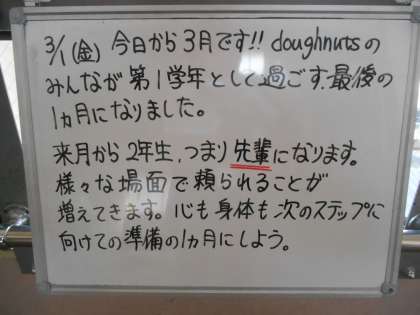 3/1(金) 今日から3月です!! doughnutsの
みんなが第1学年として過ごす最後の
1ヵ月になりました。
来月から2年生、つまり先輩になります。
様々な場面で頼られることが
増えてきます。心も身体も次のステップに
向けての準備の1ヵ月にしよう。